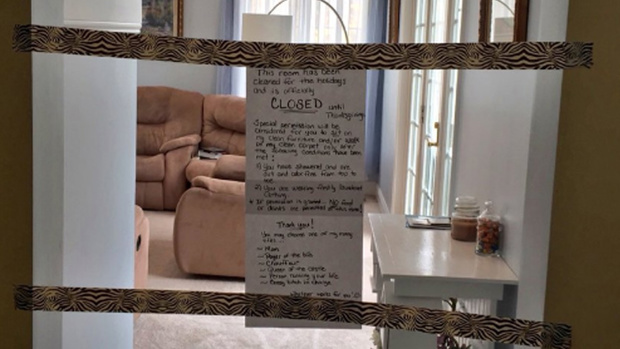 CLOSED
This room has been
cleaned for the holidays
and is officially
CLOSED until
Thanksgiving
Special permission will be
considered for you to sit on
my clean furniture and/or walk
on my clean carpet only after
the following conditions have been
met!
1) You have showered and are
dirt and odor free from head to
toe
2) You are wearing freshly laundered
clothing.
* If permission is granted... NO food
or drinks are permitted
Thank you!
You may choose one of my many
titles...
- Mom
- Payer of the bills
- Chauffeur
- Queen of the castle
- Person running your life
- Bossy bitch in charge